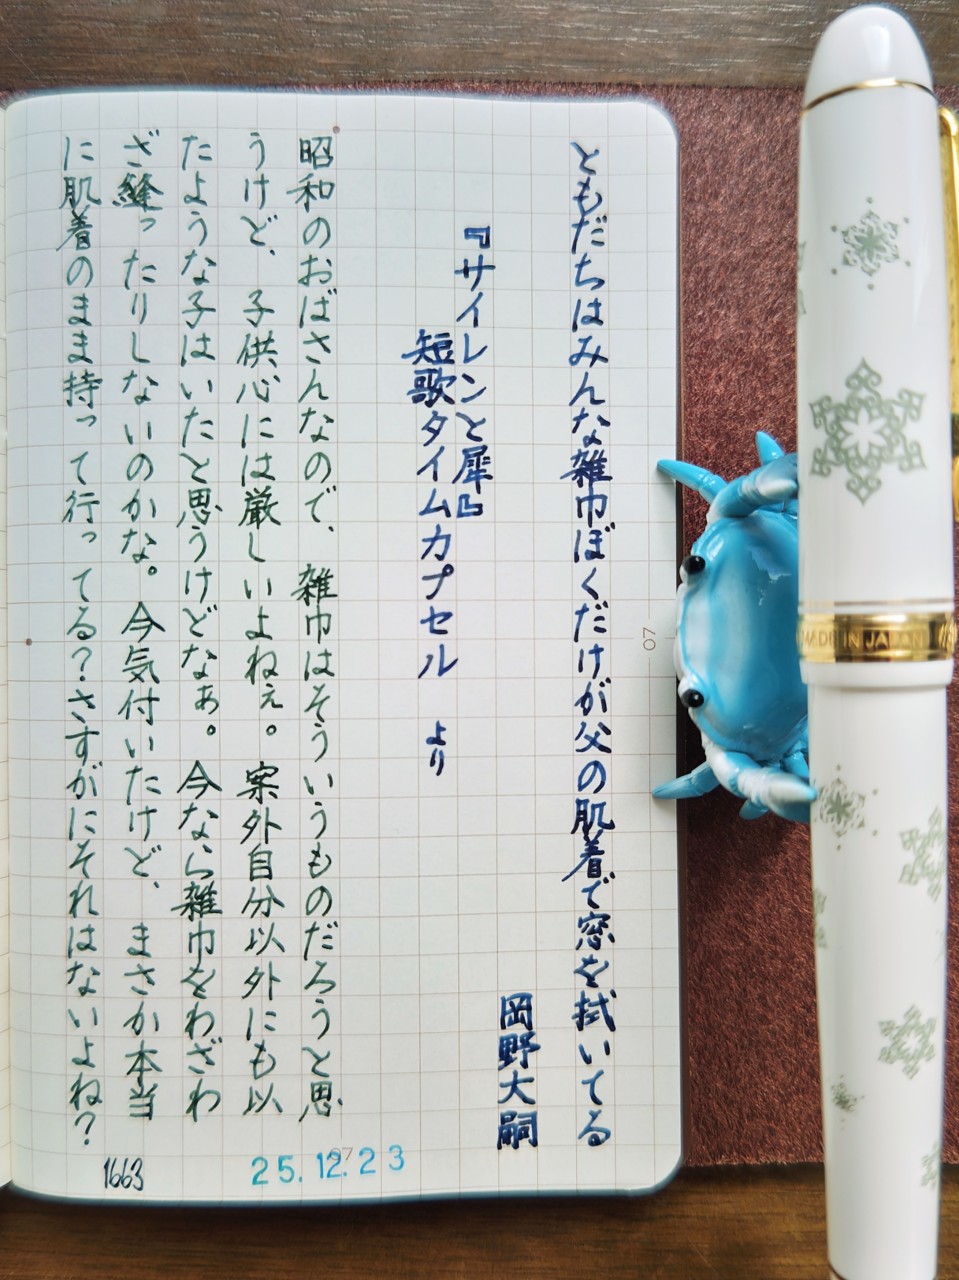 ともだちはみんな雑巾ぼくだけが父の肌着で窓を拭いてる
岡野大嗣
『サイレンと犀』
短歌タイムカプセル　より
昭和のおばさんなので、雑巾はそういうものだろうと思
うけど、子供心には厳しいよねぇ。案外自分以外にも以
たような子はいたと思うけどなぁ。今なら雑巾をわざわ
ざ縫ったりしないのかな。今気付いたけど、まさか本当
に肌着のまま持って行ってる？さすがにそれはないよね？
1663
25.12.23
07
07
MADE IN JAPAN